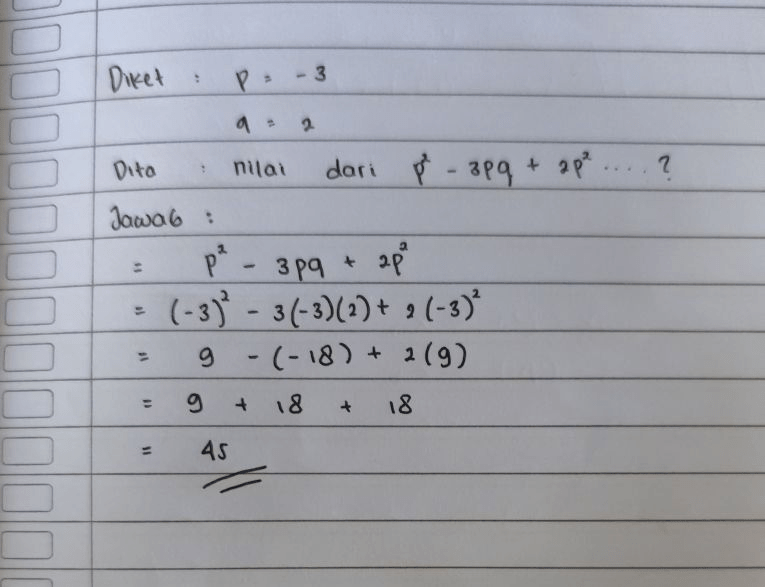 Diket : p = -3
q = 2
Dita : nilai dari p² - 3pq + 2p² .... ?
Jawab :
= p² - 3pq + 2p²
= (-3)² - 3(-3)(2) + 2(-3)²
= 9 - (-18) + 2(9)
= 9 + 18 + 18
= 45